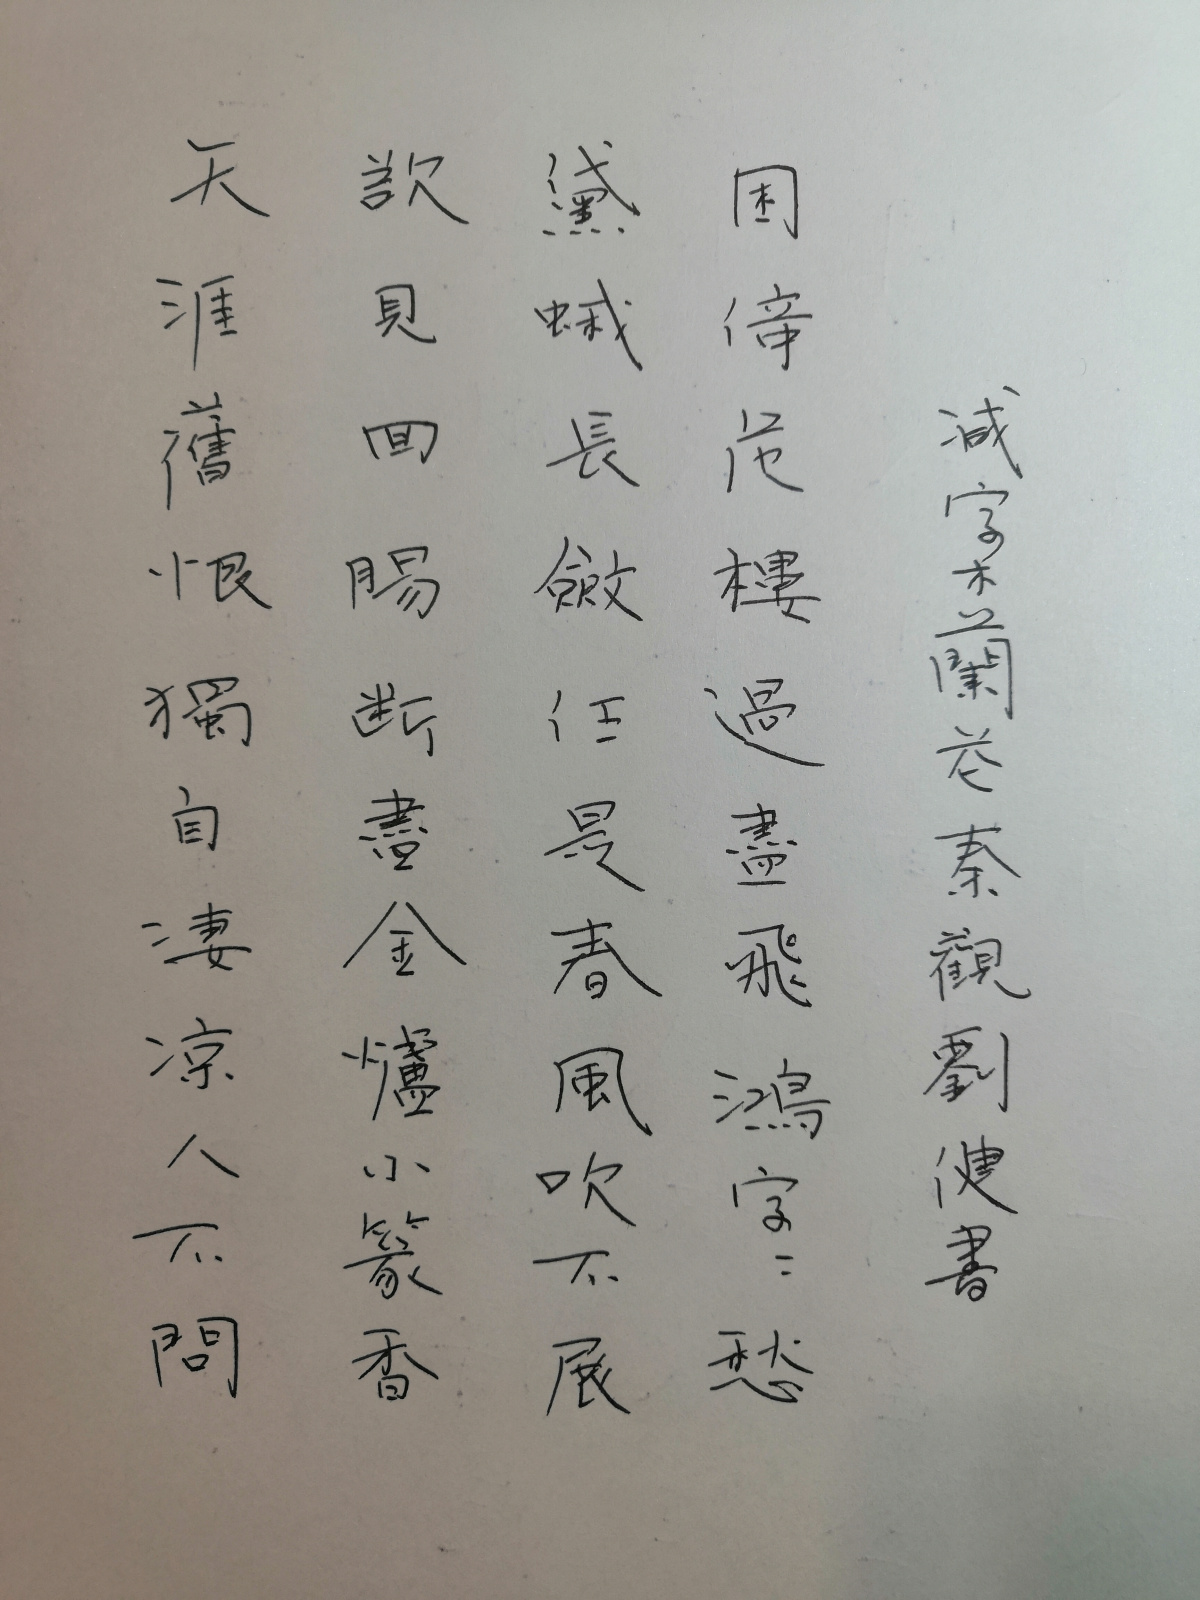 天涯舊恨獨自凄凉人不問
欲見回腸断盡金爐小篆香
黛蛾長斂任是春風吹不展
困倚危樓過盡飛鴻字々愁
減字木蘭花秦觀劉健書